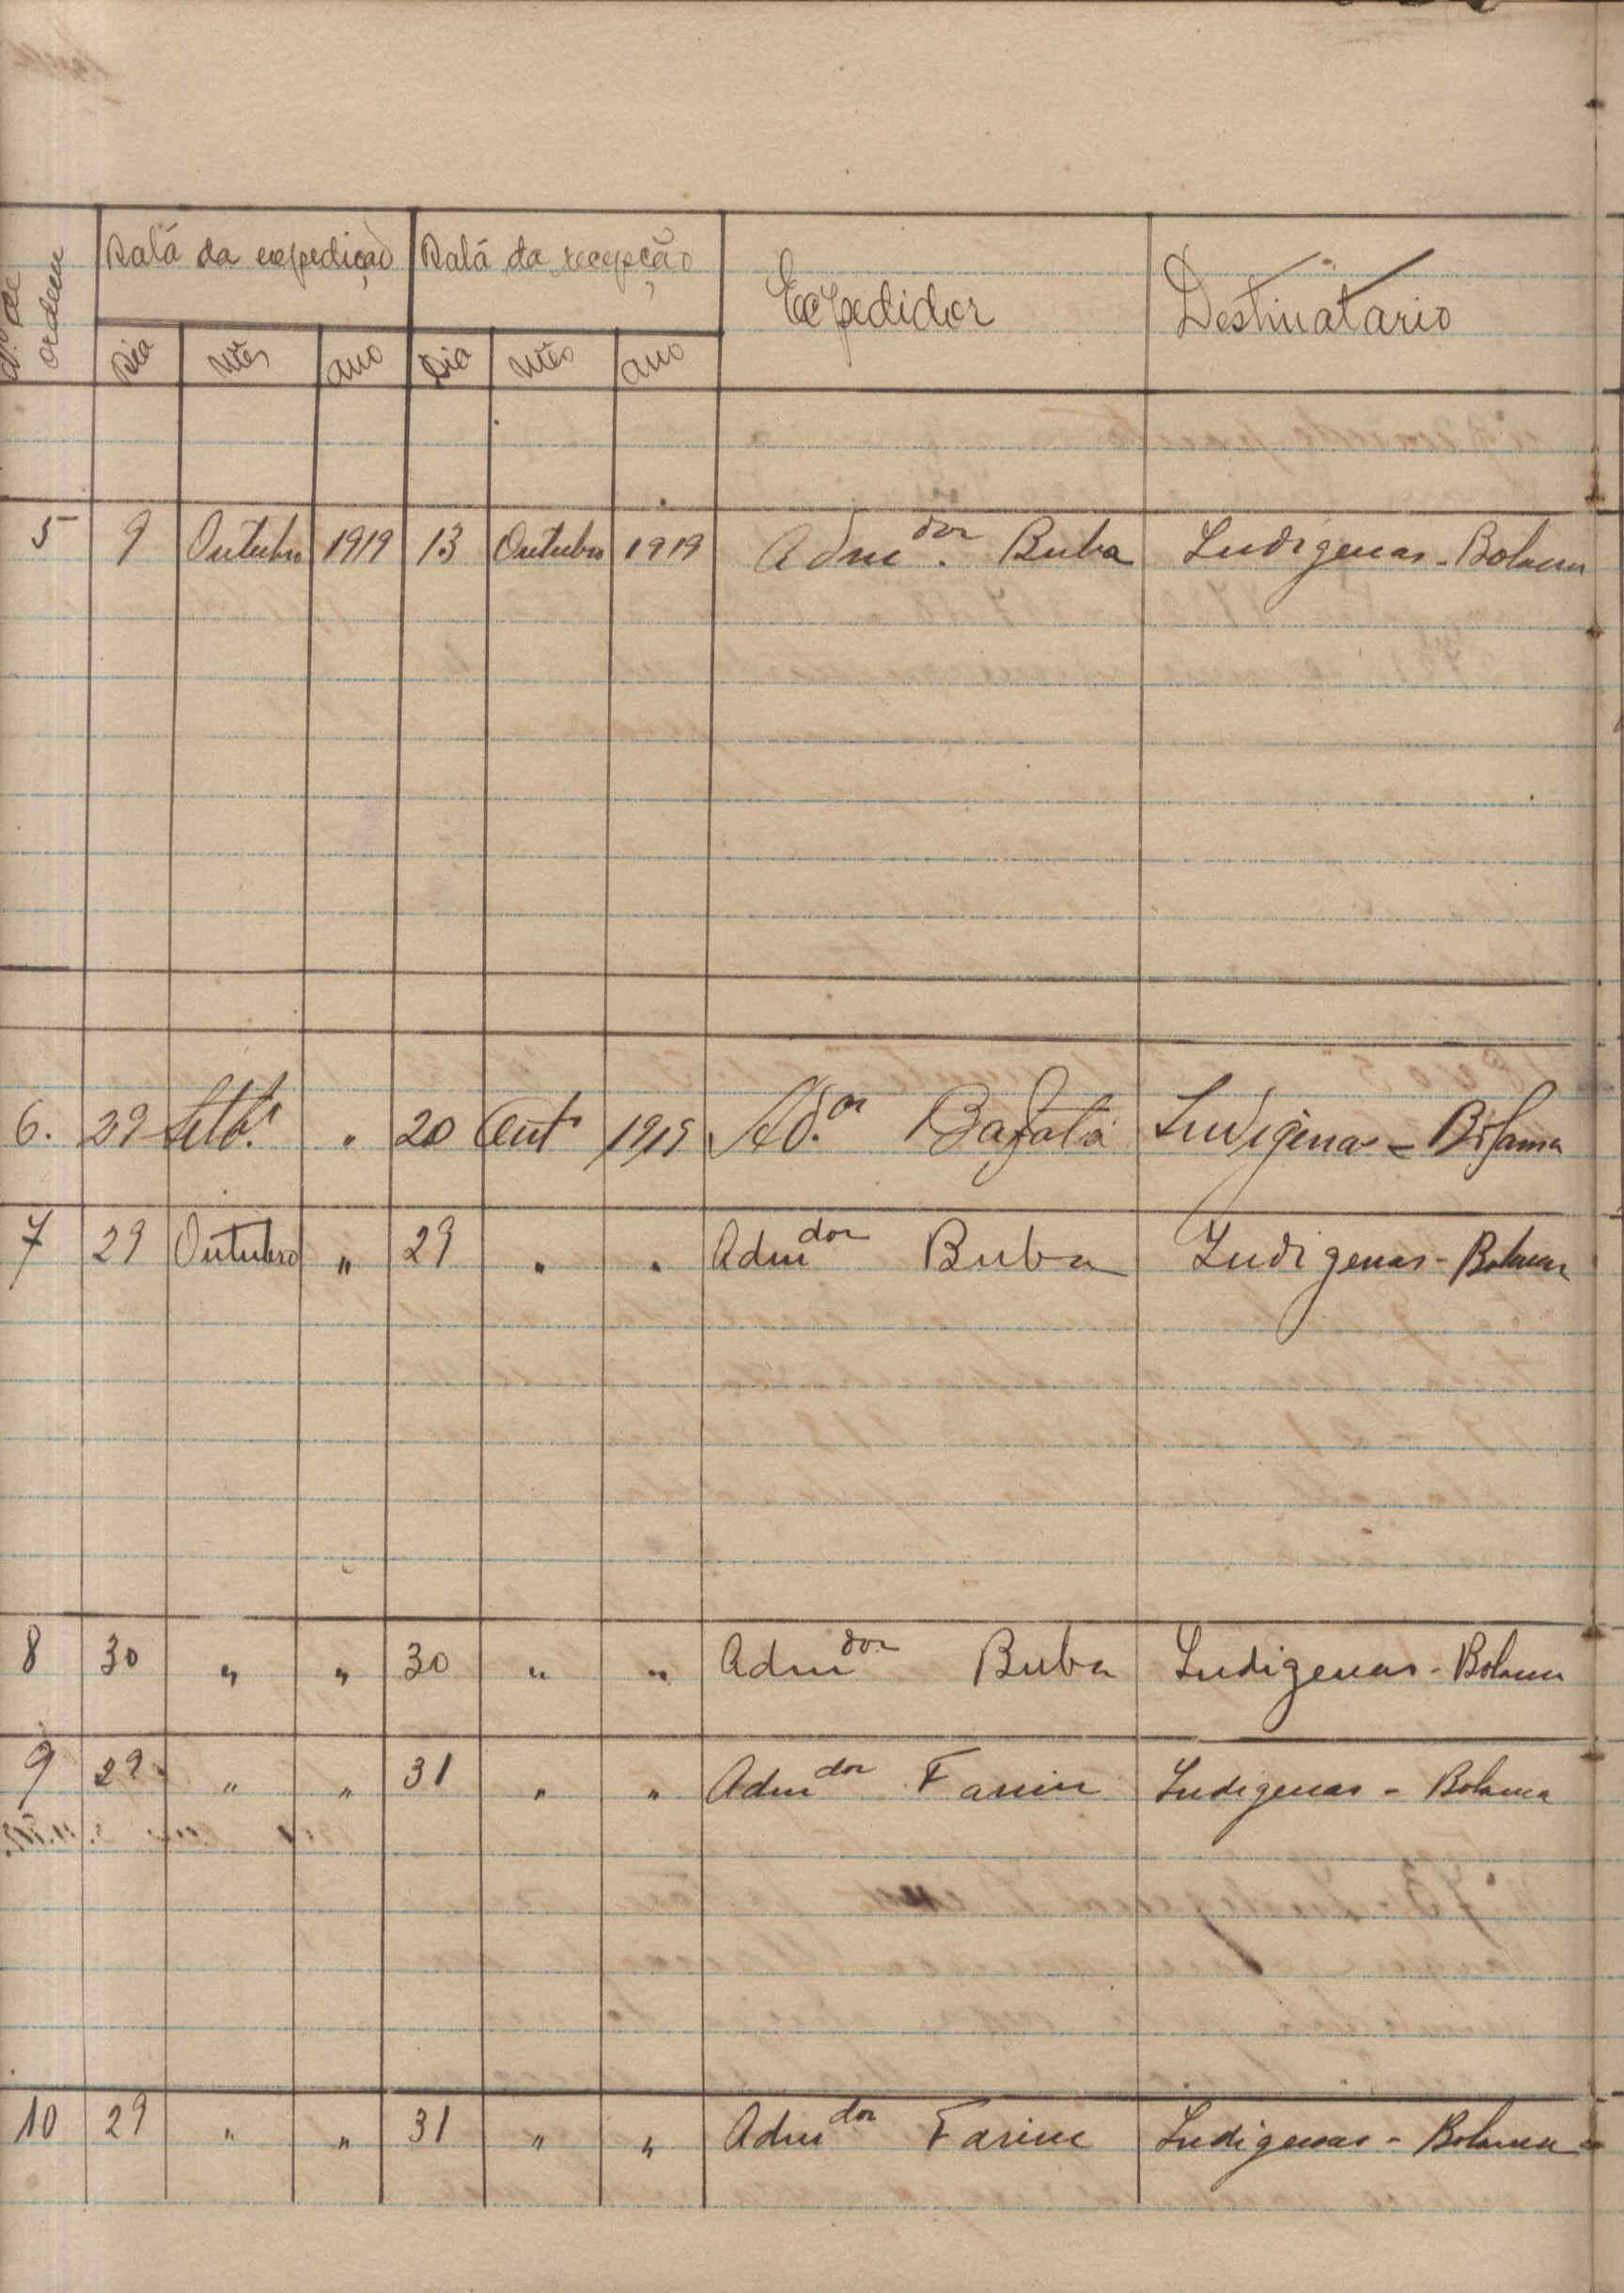 Nº de ordem | Data da expedição | Data da recepção | Expedidor | Destinatario
Dia | Mês | ano | Dia | Mês | ano
5 | 9 | Outubro | 1919 | 13 | Outubro | 1919 | Adm.dor Buba | Indigenas - Bolama
6. | 29 | Setb.º | " | 20 | Outº | 1919 | Ad.or Bafatá | Indigenas - Bolama
7 | 29 | Outubro | " | 29 | " | " | Admdor Buba | Indigenas - Bolama
8 | 30 | " | " | 30 | " | " | Admdor Buba | Indigenas - Bolama
9 | 29 | " | " | 31 | " | " | Admdor Farim | Indigenas - Bolama
10 | 29 | " | " | 31 | " | " | Admdor Farim | Indigenas - Bolama